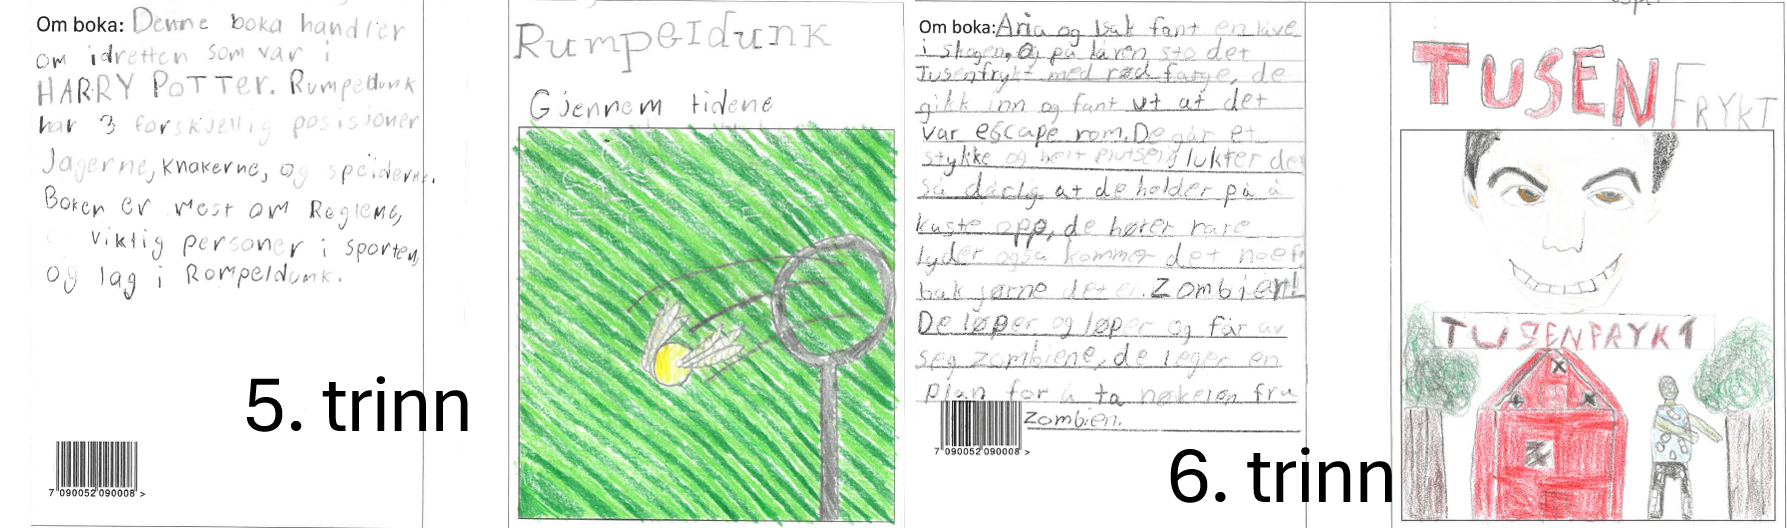 Om boka: Denne boka handler
om idretten som var i
HARRY POTTER. Rumpedunk
har 3 forskjellig posisjoner
Jagerne, knakerne, og speiderne.
Boken er mest om Reglene,
viktig personer i sporten,
og lag i Rompeldunk.
5. trinn
7 090052 090008 >
Rumpeldunk
Gjennem tidene
Om boka: Aria og Isak fant en låve
i skogen, og på låven sto det
Tusenfrykt med rød farge, de
gikk inn og fant ut at det
var escape rom. De går et
stykke og helt plutselig lukter det
så dårlig at de holder på å
kaste opp, de hører rare
lyder også kommer det noe
bak jørne det er. Zombier!
De løper og løper og får av
seg zombiene, de leger en
plan for å ta nøkelen fra
zombien.
7 090052 090008 >
6. trinn
TUSENFRYKT
TUSENFRYKT